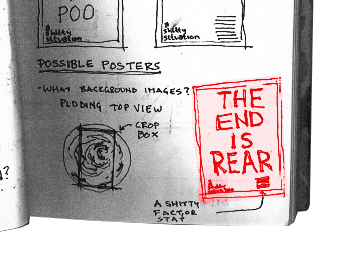 POO
a
shitty
situation
a
shitty
situation
POSSIBLE POSTERS
• WHAT BACKGROUND IMAGES?
PUDDING TOP VIEW
CROP
BOX
THE
END
IS
REAR
A SHITTY
FACTOR
STAT
?